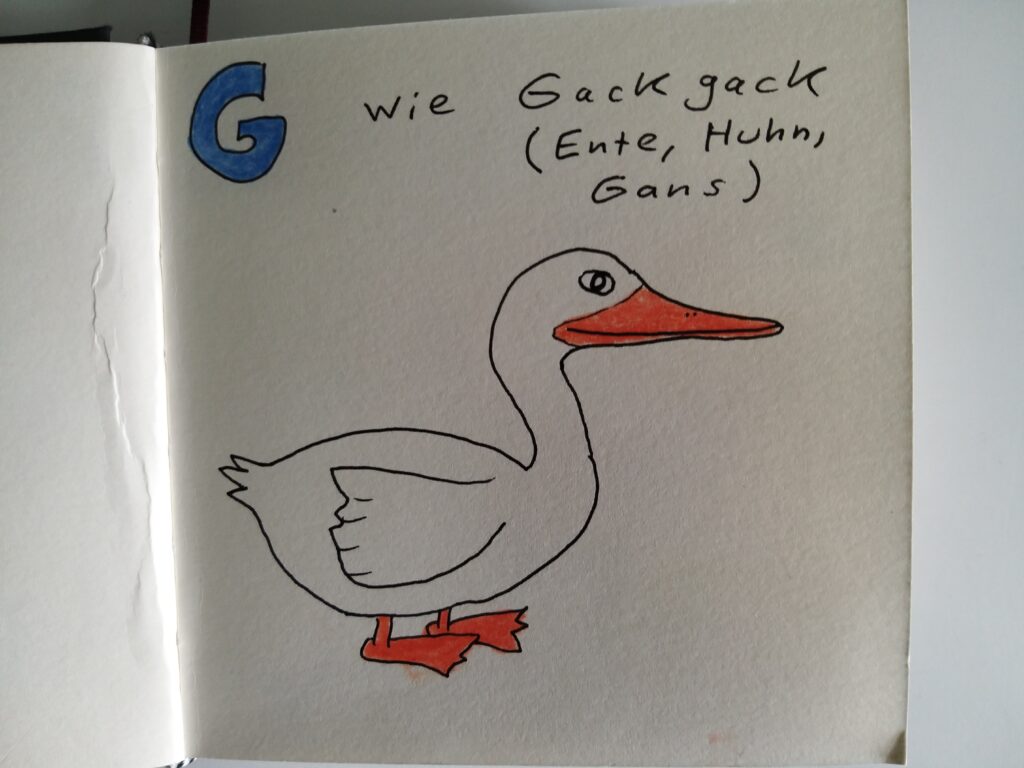 G wie Gack gack
(Ente, Huhn,
Gans)